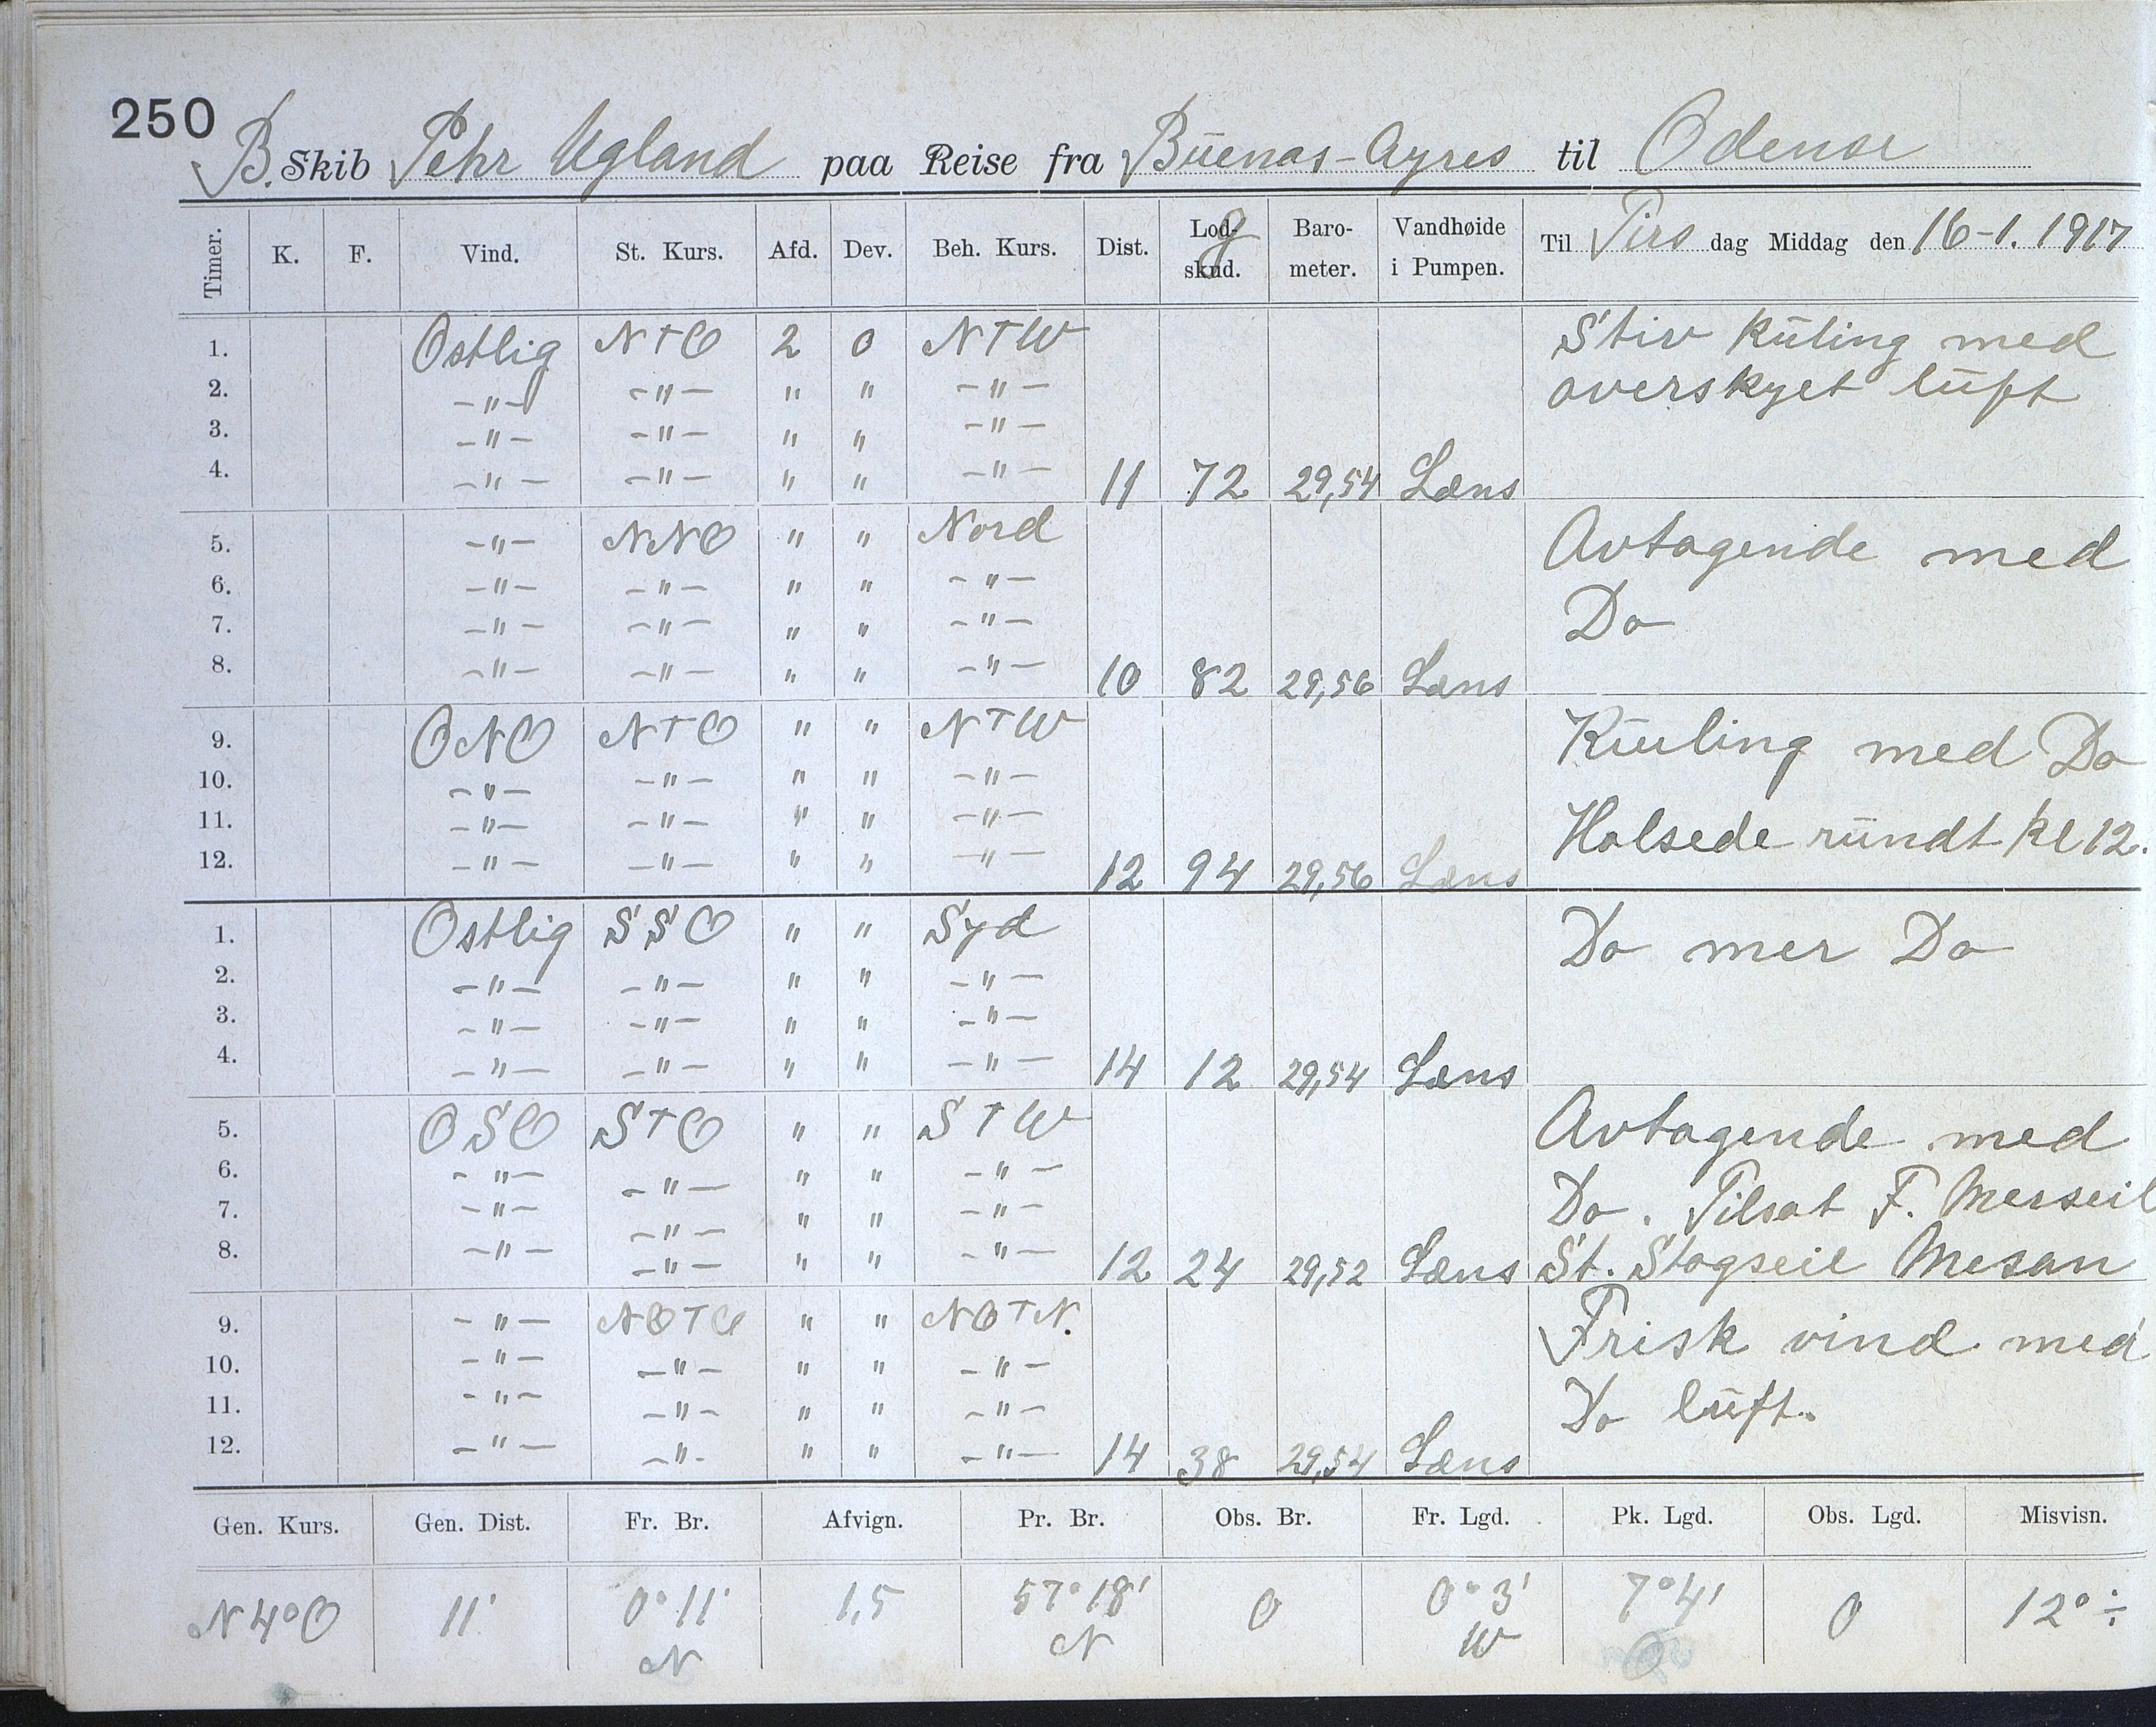 250
B. Skib Pehr Ugland paa Reise fra Buenas-Ayres til Odense
Timer. K. F. Vind. St. Kurs. Afd. Dev. Beh. Kurs. Dist. Lodg skud. Baro- meter. Vandhøide i Pumpen. Til Tirs dag Middag den 16-1. 1917
1. Ostlig N T O 2 0 N T W Stiv kūling med
2. -"- -"- " " -"- overskyet lūft
3. -"- -"- " " -"-
4. -"- -"- " " -"- 11 72 29,54 Læns
5. -"- NNO " " Nord Avtagende med
6. -"- -"- " " -"-
7. -"- -"- " " -"- Do
8. -"- -"- " " -"- 10 82 29,56 Læns
9. ONO N T O " " N T W Kuling med Do
10. -"- -"- " " -"-
11. -"- -"- " " -"- Halsede rūndt kl 12.
12. -"- -"- " " -"- 12 94 29,56 Læns
1. Ostlig SSO " " Syd Do mer Do
2. -"- -"- " " -"-
3. -"- -"- " " -"-
4. -"- -"- " " -"- 14 12 29,54 Læns
5. OSO S T O " " S T W Avtagende med
6. -"- -"- " " -"-
7. -"- -"- " " -"- Do. Tilsat F. Merseil
8. -"- -"- " " -"- 12 24 29,52 Læns St. Stagseil Mesan
9. -"- NO T O " " NO T N. Frisk vind med
10. -"- -"- " " -"-
11. -"- -"- " " -"- Do lūft.
12. -"- -"- " " -"- 14 38 29,54 Læns
Gen. Kurs. Gen. Dist. Fr. Br. Afvign. Pr. Br. Obs. Br. Fr. Lgd. Pk. Lgd. Obs. Lgd. Misvisn.
N 4° O 11' 0° 11' 1,5 57° 18' 0 0° 3' 7° 4' 0 12° ÷
N N W O